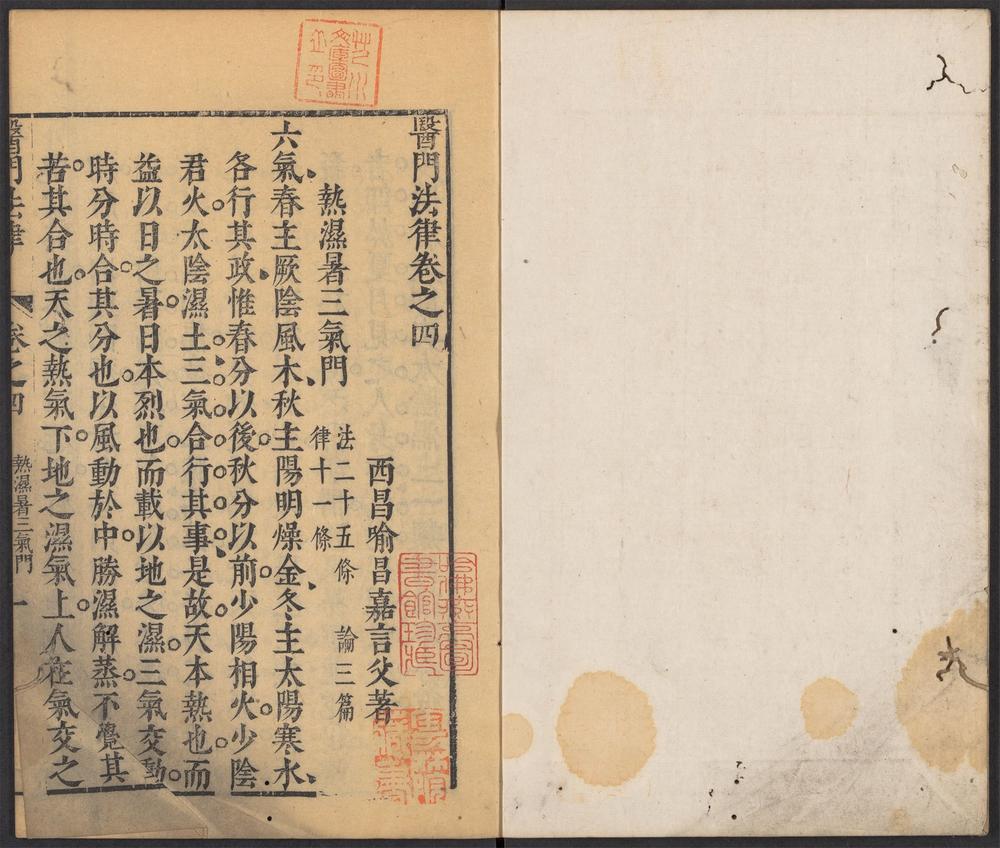 醫門法律卷之四
西昌喻昌嘉言父著
熱濕暑三氣門
法二十五條 論三篇
律十一條
六氣春主厥陰風木秋主陽明燥金冬主太陽寒水
各行其政惟春分以後秋分以前少陽相火少陰
君火太陰濕土三氣合行其事是故天本熱也而
益以日之暑日本烈也而載以地之濕三氣交動
時分時合其分也以風動於中勝濕解蒸不覺其
苦其合也天之熱氣下地之濕氣上人在氣交之
醫門法律 卷之四 熱濕暑三氣門 一
哈佛燕京圖書館珍藏